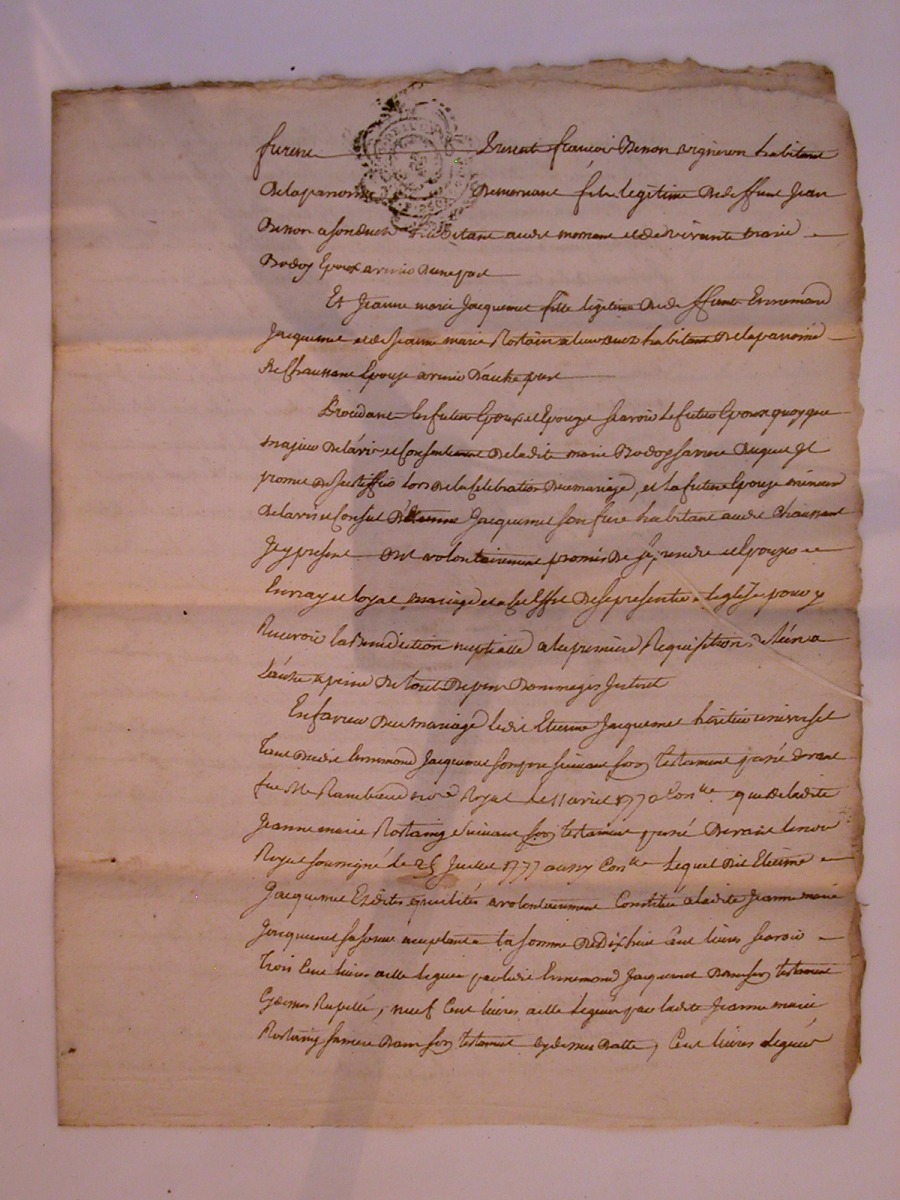 furent present françois Benon vigneron habitant
De la paroisse De mornant fils legitime De deffunt Jean
Benon a son deces habitant audit mornant et de vivante marie
Bodoy Epoux avenir D'une part
Et Jeanne marie Jacquemet fille legitime De deffunt Ennemond
Jacquemet et de Jeanne marie Rostain a leur deces habitant De la paroisse
De Chaussant Epouse avenir D'autre part
Procedant les futurs Epoux et Epouse scavoir Le futur Epoux quoyque
majeur De l'avis et Consentement De ladite marie Bodoy sa mere Duquel Jl
promet De justiffier lors De la Celebration Du mariage, et La future Epouse mineure
De l'avis et Conseil D'Etienne Jacquemet son frere habitant audit Chaussant
Jcy present ont volontairement promis De se prendre et Epouser en
En vray et loyal mariage et a Cet Effet De se presenter a l'eglise pour y
Recevoir la Benediction nuptialle a la premiere Requisition De l'un a
L'autre a peine De tout Depens Dommages Jnterets
En faveur Du mariage ledit Etienne Jacquemet heritier universel
Tant Dudit Ennemond Jacquemet son pere suivant son testament passé devant
feu Me Rambaud nore Royal le 11 avril 1770 Conlle que De ladite
Jeanne marie Rostaing suivant son testament passé Devant le nore
Royal soussigné le 25 Juillet 1777 aussy Conlle Lequel Dit Etienne
Jacquemet Esdites qualités a volontairement Constitué a ladite Jeanne marie
Jacquemet sa soeur acceptante la somme De Dix huit Cent livres scavoir
Trois Cent livres a elle leguée par ledit Ennemond Jacquemet Dans son testament
Cy dessus Rapellé, neuf Cent livres a elle leguées par ladite Jeanne marie
Rostaing sa mere Dans son testament cy dessus Datté, Cent livres Leguées